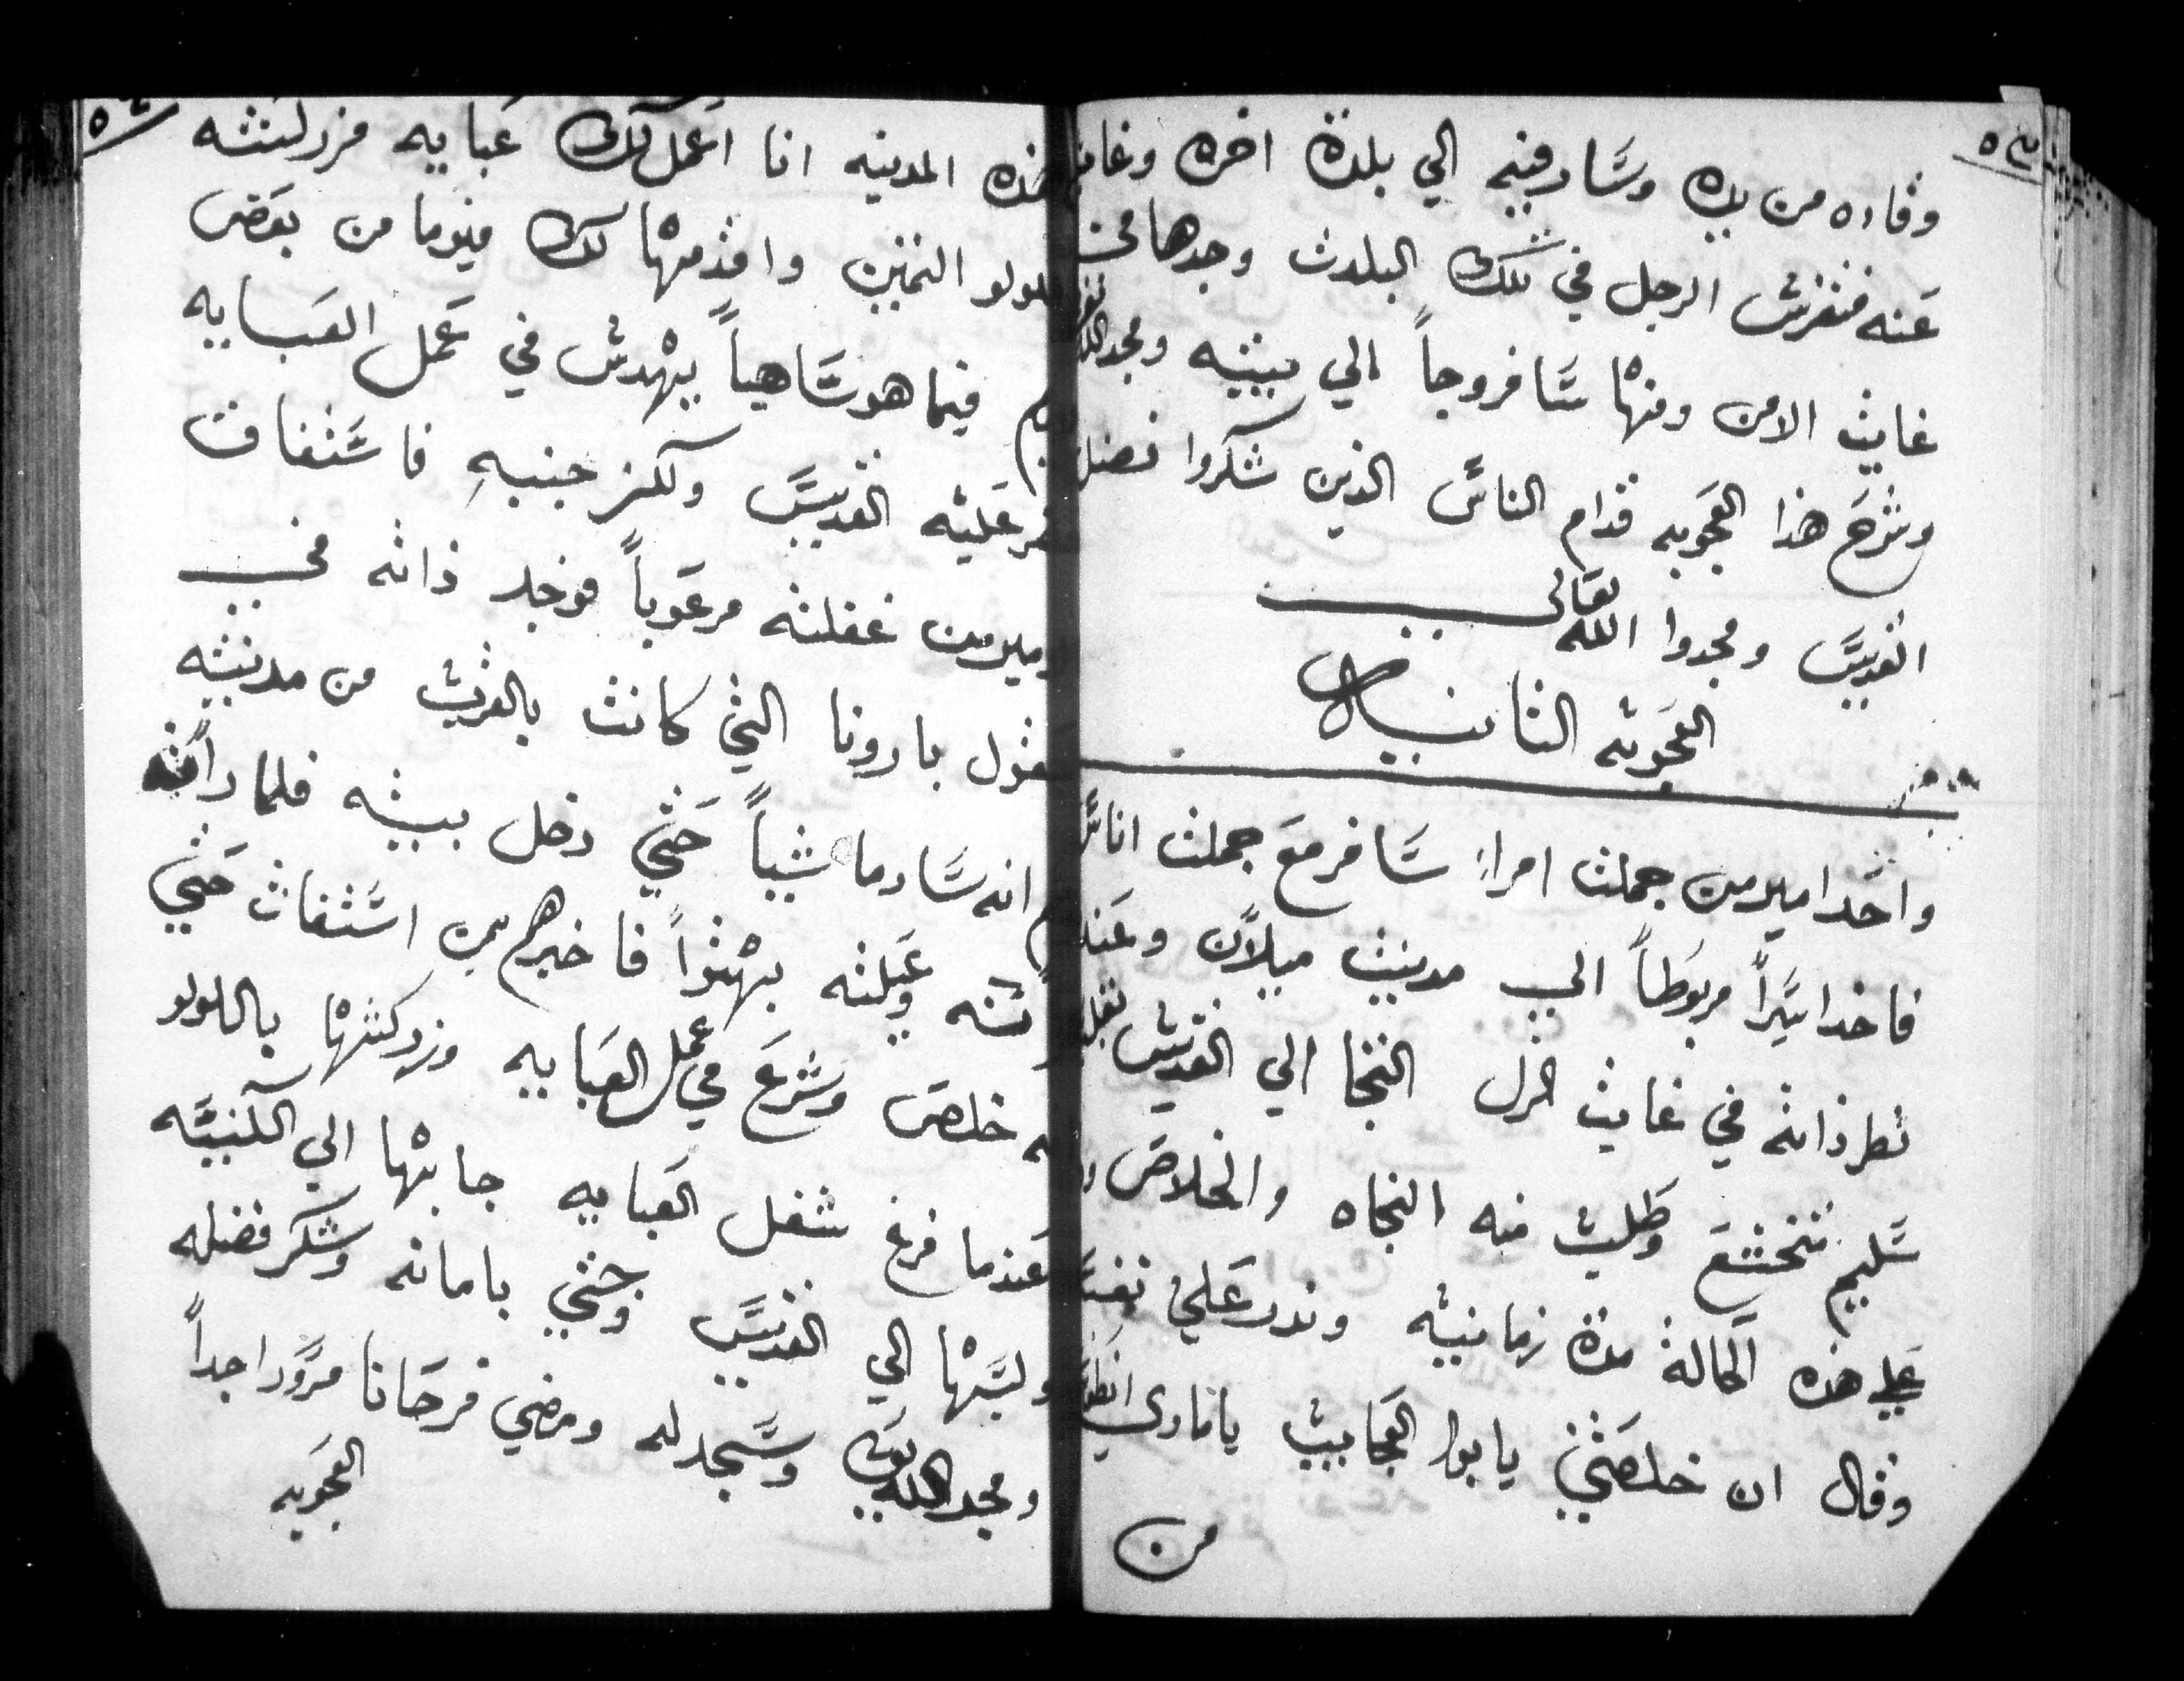 ٥٣
وقاده من يده وسار فيه الي بلدة اخره وغاب
عنه فتفرس الرجل في تلك البلدت وجدها في
غايت الامن ومنها سافروجاً الي بيته ومجد الله
وشرح هذا العجوبه قدام الناس الذين شكروا فضل
القديس ومجدوا الله تعالى
العجوبه الثانيه
واحد امير من جملت امراء سافر مع جملت اناس
فاخد اسيراً مربوطاً الي مدينت ميلان وعند
نظر ذاته في غايت الزل التجا الي القديس بقلب
سليم تتخشع وطلب منه النجاه والخلاص
علي هذه الحالة مدة زمانيه وندر علي نفسه
وقال ان خلصتني يا ابوا العجايب يا مارى انطون
من
٥٤
هذه المدينه انا اعمل لك عبايه مزركشه
باللولو الثمين واقدمها لك فيوما من بعض
فيما هو ساهياً يهدس في عمل العبايه
مر عليه القديس ولكز جنبه فاستفاق
الامير من غفلته مرعوباً فوجد ذاته في
بارونا التي كانت بالقرب من مدينته
انه سار ماشياً حتي دخل بيته فلما راته
وعيلته بهتوا فاخبرهم بمن استغاث حتي
خلص وشرع في عمل العبايه وزركشها باللولو
وعندما فرغ شغل العبايه جابها الي الكنيسه
ولبسها الي القديس وحتي بامانه وشكر فضله
ومجد الله تعالى وسجد له ومضي فرحانا مسرورا جداً
العجوبه